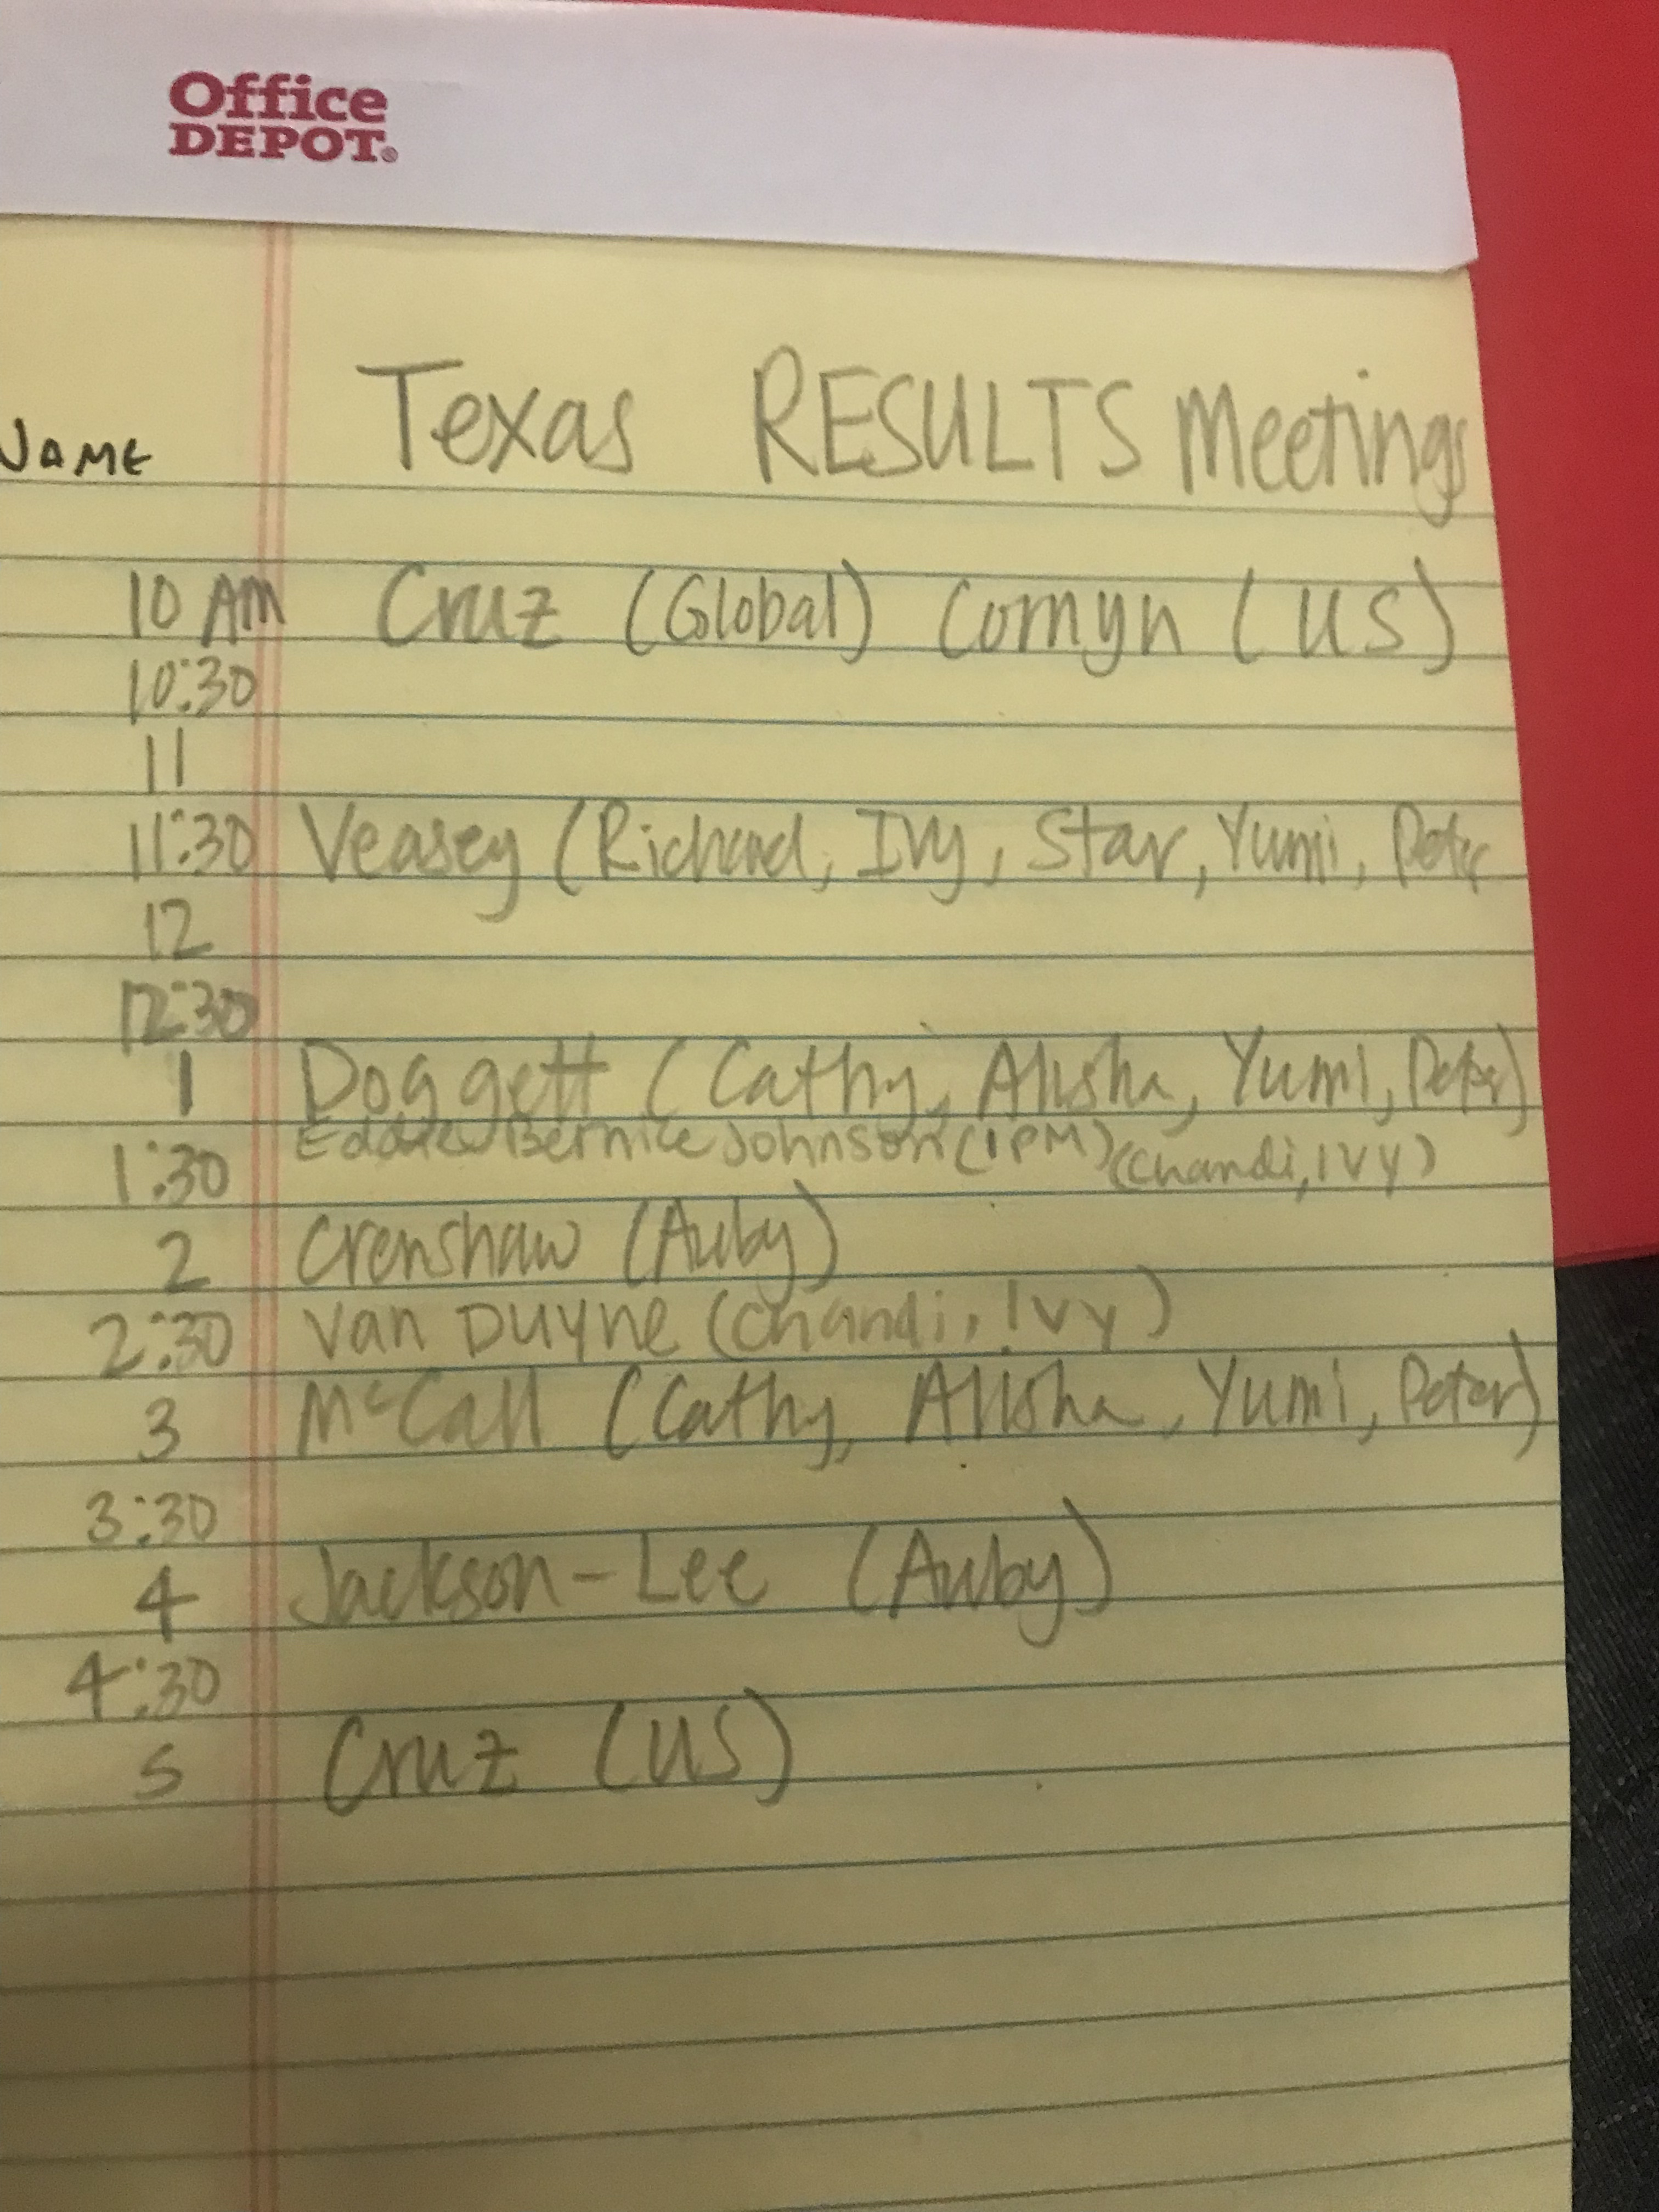 Office
DEPOT®
NAME
Texas RESULTS Meetings
10 AM Cruz (Global) Cornyn (US)
10:30
11
11:30 Veasey (Richard, Ivy, Star, Yumi, Peter
12
12:30
1 Doggett (Cathy, Alisha, Yumi, Peter)
1:30 Bernice Johnson (1PM) (Chandi, IVY)
2 Crenshaw (Auby)
2:30 Van DUYNE (Chandi, IVY)
3 McCall (Cathy, Alisha, Yumi, Peter)
3:30
4 Jackson-Lee (Auby)
4:30
5 Cruz (US)